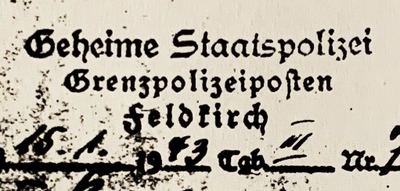 Geheime Staatspolizei
Grenzpolizeiposten
Feldkirch
15. 1. 1943 Tgb III Nr.